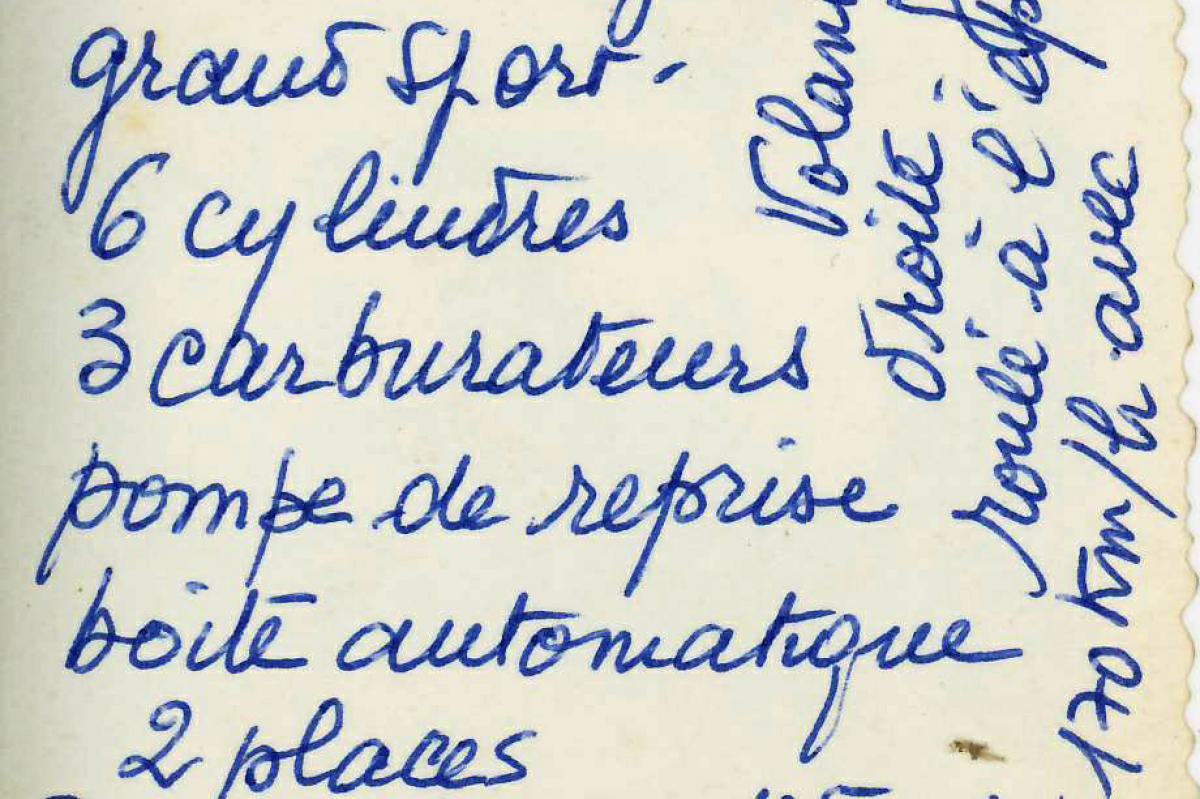 grand sport.
6 cylindres
3 carburateurs
pompe de reprise
boite automatique
2 places
droite.
roulé à l'
170 km/h avec